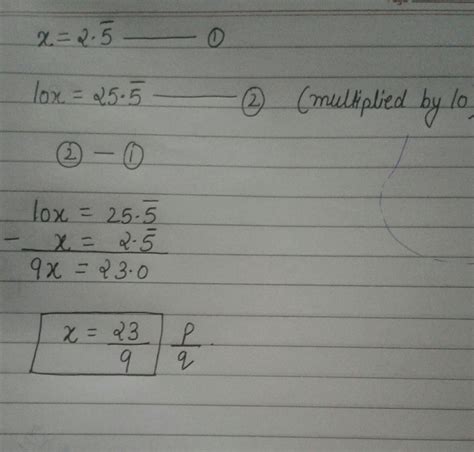 x = 2.5̅ ——— ①
10x = 25.5̅ ——— ② (multiplied by 10
② - ①
10x = 25.5̅
- x = 2.5̅
9x = 23.0
x = 23/9 p/q